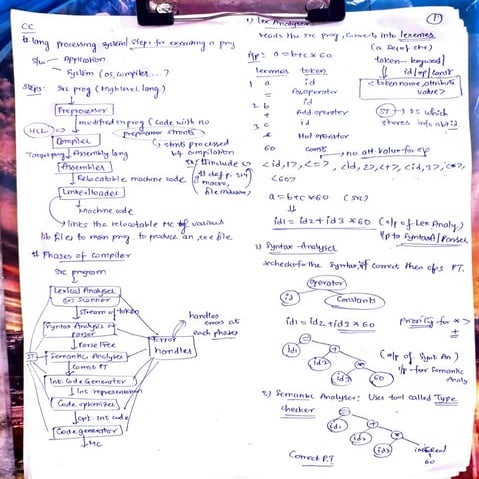 CC
# lang processing system/ steps for executing a prog
S/w - Application
System (os, compiler....?)
Steps: Src prog (High level lang.)
Preprocessor
modified srcprog (code with no
preprocessor stmnts)
HLL
Compiler
stmts processed
b4 compilation
Target prog Assembly lang
Assembler
Ex/ #include <>
# def pi 3.14
macro,
file inclusion
Relocatable machine code
Linker/loader
Machine code
links the relocatable MC of various
lib files to main prog. to produce an .exe file
# Phases of compiler
Src program
Lexical Analyser
(or) Scanner
Stream of token
Syntax Analysis or
parser
Parse Tree
ST
Semantic Analyser
Correct PT
Int. Code Generator
Int. representation
Code optimizer
Opt. int code
Code generator
MC
Error
handler
handles
errors at
each phases
1
1) Lex Analyser
reads the src prog, converts into lexemes
(a seq of chr)
i/p: a=b+c*60
token - keyword/
id/op/const
lexemes token
<token name, attribute
value>
1 a id
= As operator
2 b id
+ Add. operator
3 c id
* Mul operator
60 const
ST → DS which
stores info abt id.
no att. value for op
<id,1>, <=>, <id,2>, <+>, <id,3>, <*>,
<60>
a=b+c*60 (src)
id1 = id2 + id3 * 60 (o/p of Lex Analy.)
i/p to Syntax A/Parser
2) Syntax Analyser
→checks for the syntax, if correct then o/ps PT.
operator
id
Constants
id1 = id2 + id3 * 60
Priority for * >
+
=
id1
+
id2
*
id3
60
(o/p of Synt An)
i/p for Semantic
Analy
3) Semantic Analyser: Uses tool called Type
checker
=
id1
+
id2
*
id3
60
Correct P.T